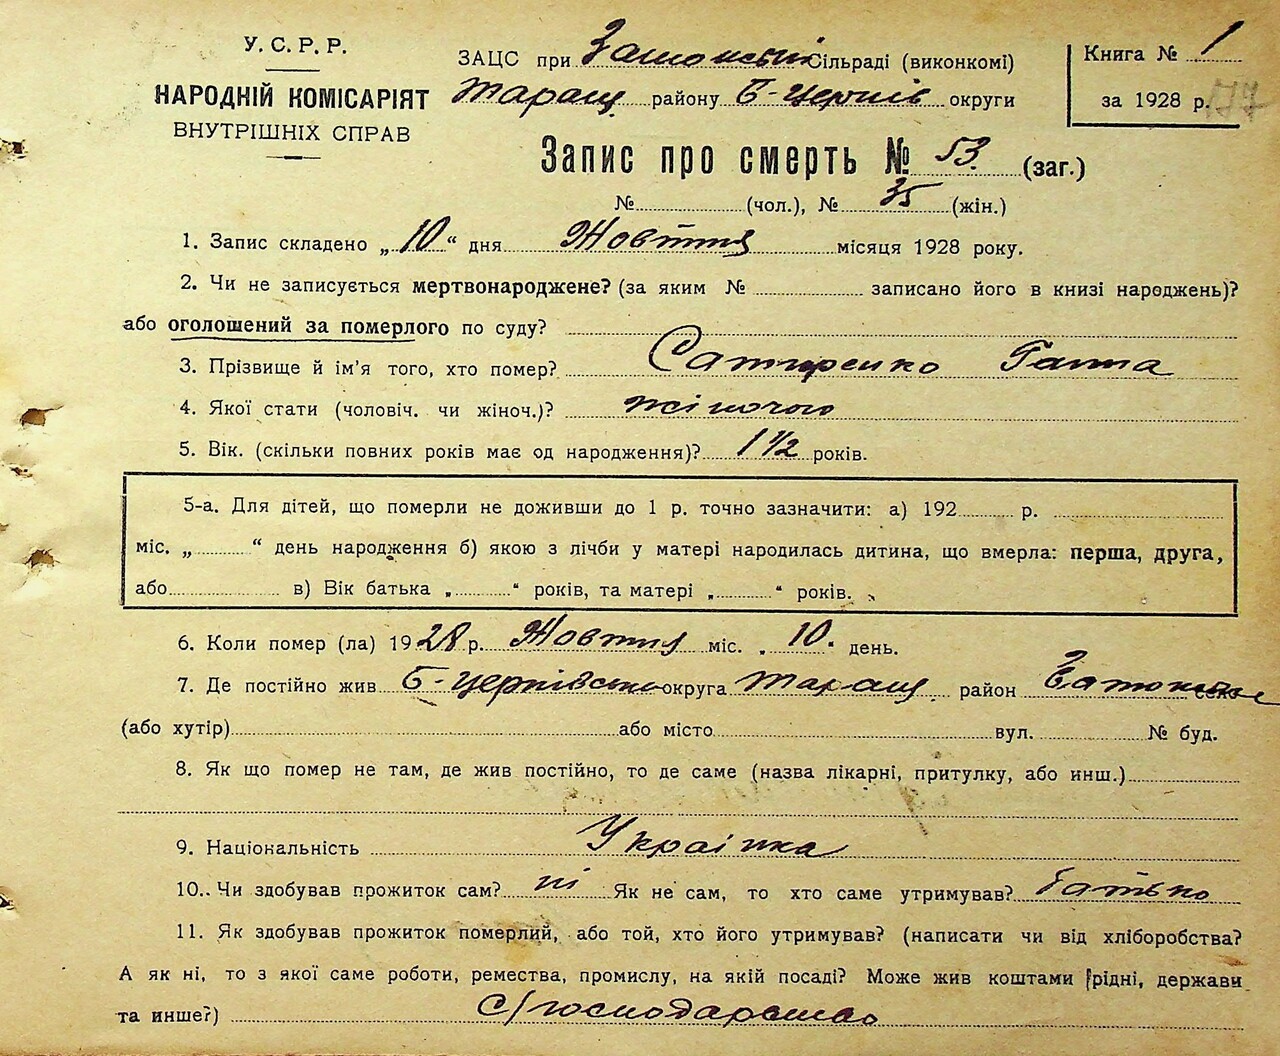 У. С. Р. Р.
НАРОДНІЙ КОМІСАРІЯТ
ВНУТРІШНІХ СПРАВ
ЗАЦС при Сільраді (виконкомі)
Таращ. району Б-Церків округи
Книга № 1
за 1928 р. 177
Запис про смерть № 53. (заг.)
№ (чол.), № 35 (жін.)
1. Запис складено „10“ дня Жовтня місяця 1928 року.
2. Чи не записується мертвонароджене? (за яким № записано його в книзі народжень)?
або оголошений за померлого по суду?
3. Прізвище й ім'я того, хто помер? Сатиренко Ганна
4. Якої стати (чоловіч. чи жіноч.)? жіночого
5. Вік. (скільки повних років має од народження)? 1 1/2 років.
5-а. Для дітей, що померли не доживши до 1 р. точно зазначити: а) 192 р.
міс. „ “ день народження б) якою з лічби у матері народилась дитина, що вмерла: перша, друга,
або в) Вік батька „ “ років, та матері „ “ років.
6. Коли помер (ла) 1928 р. Жовтня міс. „10“ день.
7. Де постійно жив Б-Церківська округа Таращ район село
(або хутір) або місто вул. № буд.
8. Як що помер не там, де жив постійно, то де саме (назва лікарні, притулку, або инш.)
9. Національність Українка
10. Чи здобував прожиток сам? ні Як не сам, то хто саме утримував? батько
11. Як здобував прожиток померлий, або той, хто його утримував? (написати чи від хліборобства?
А як ні, то з якої саме роботи, ремества, промислу, на якій посаді? Може жив коштами рідні, держави
та инше?) С/господарство